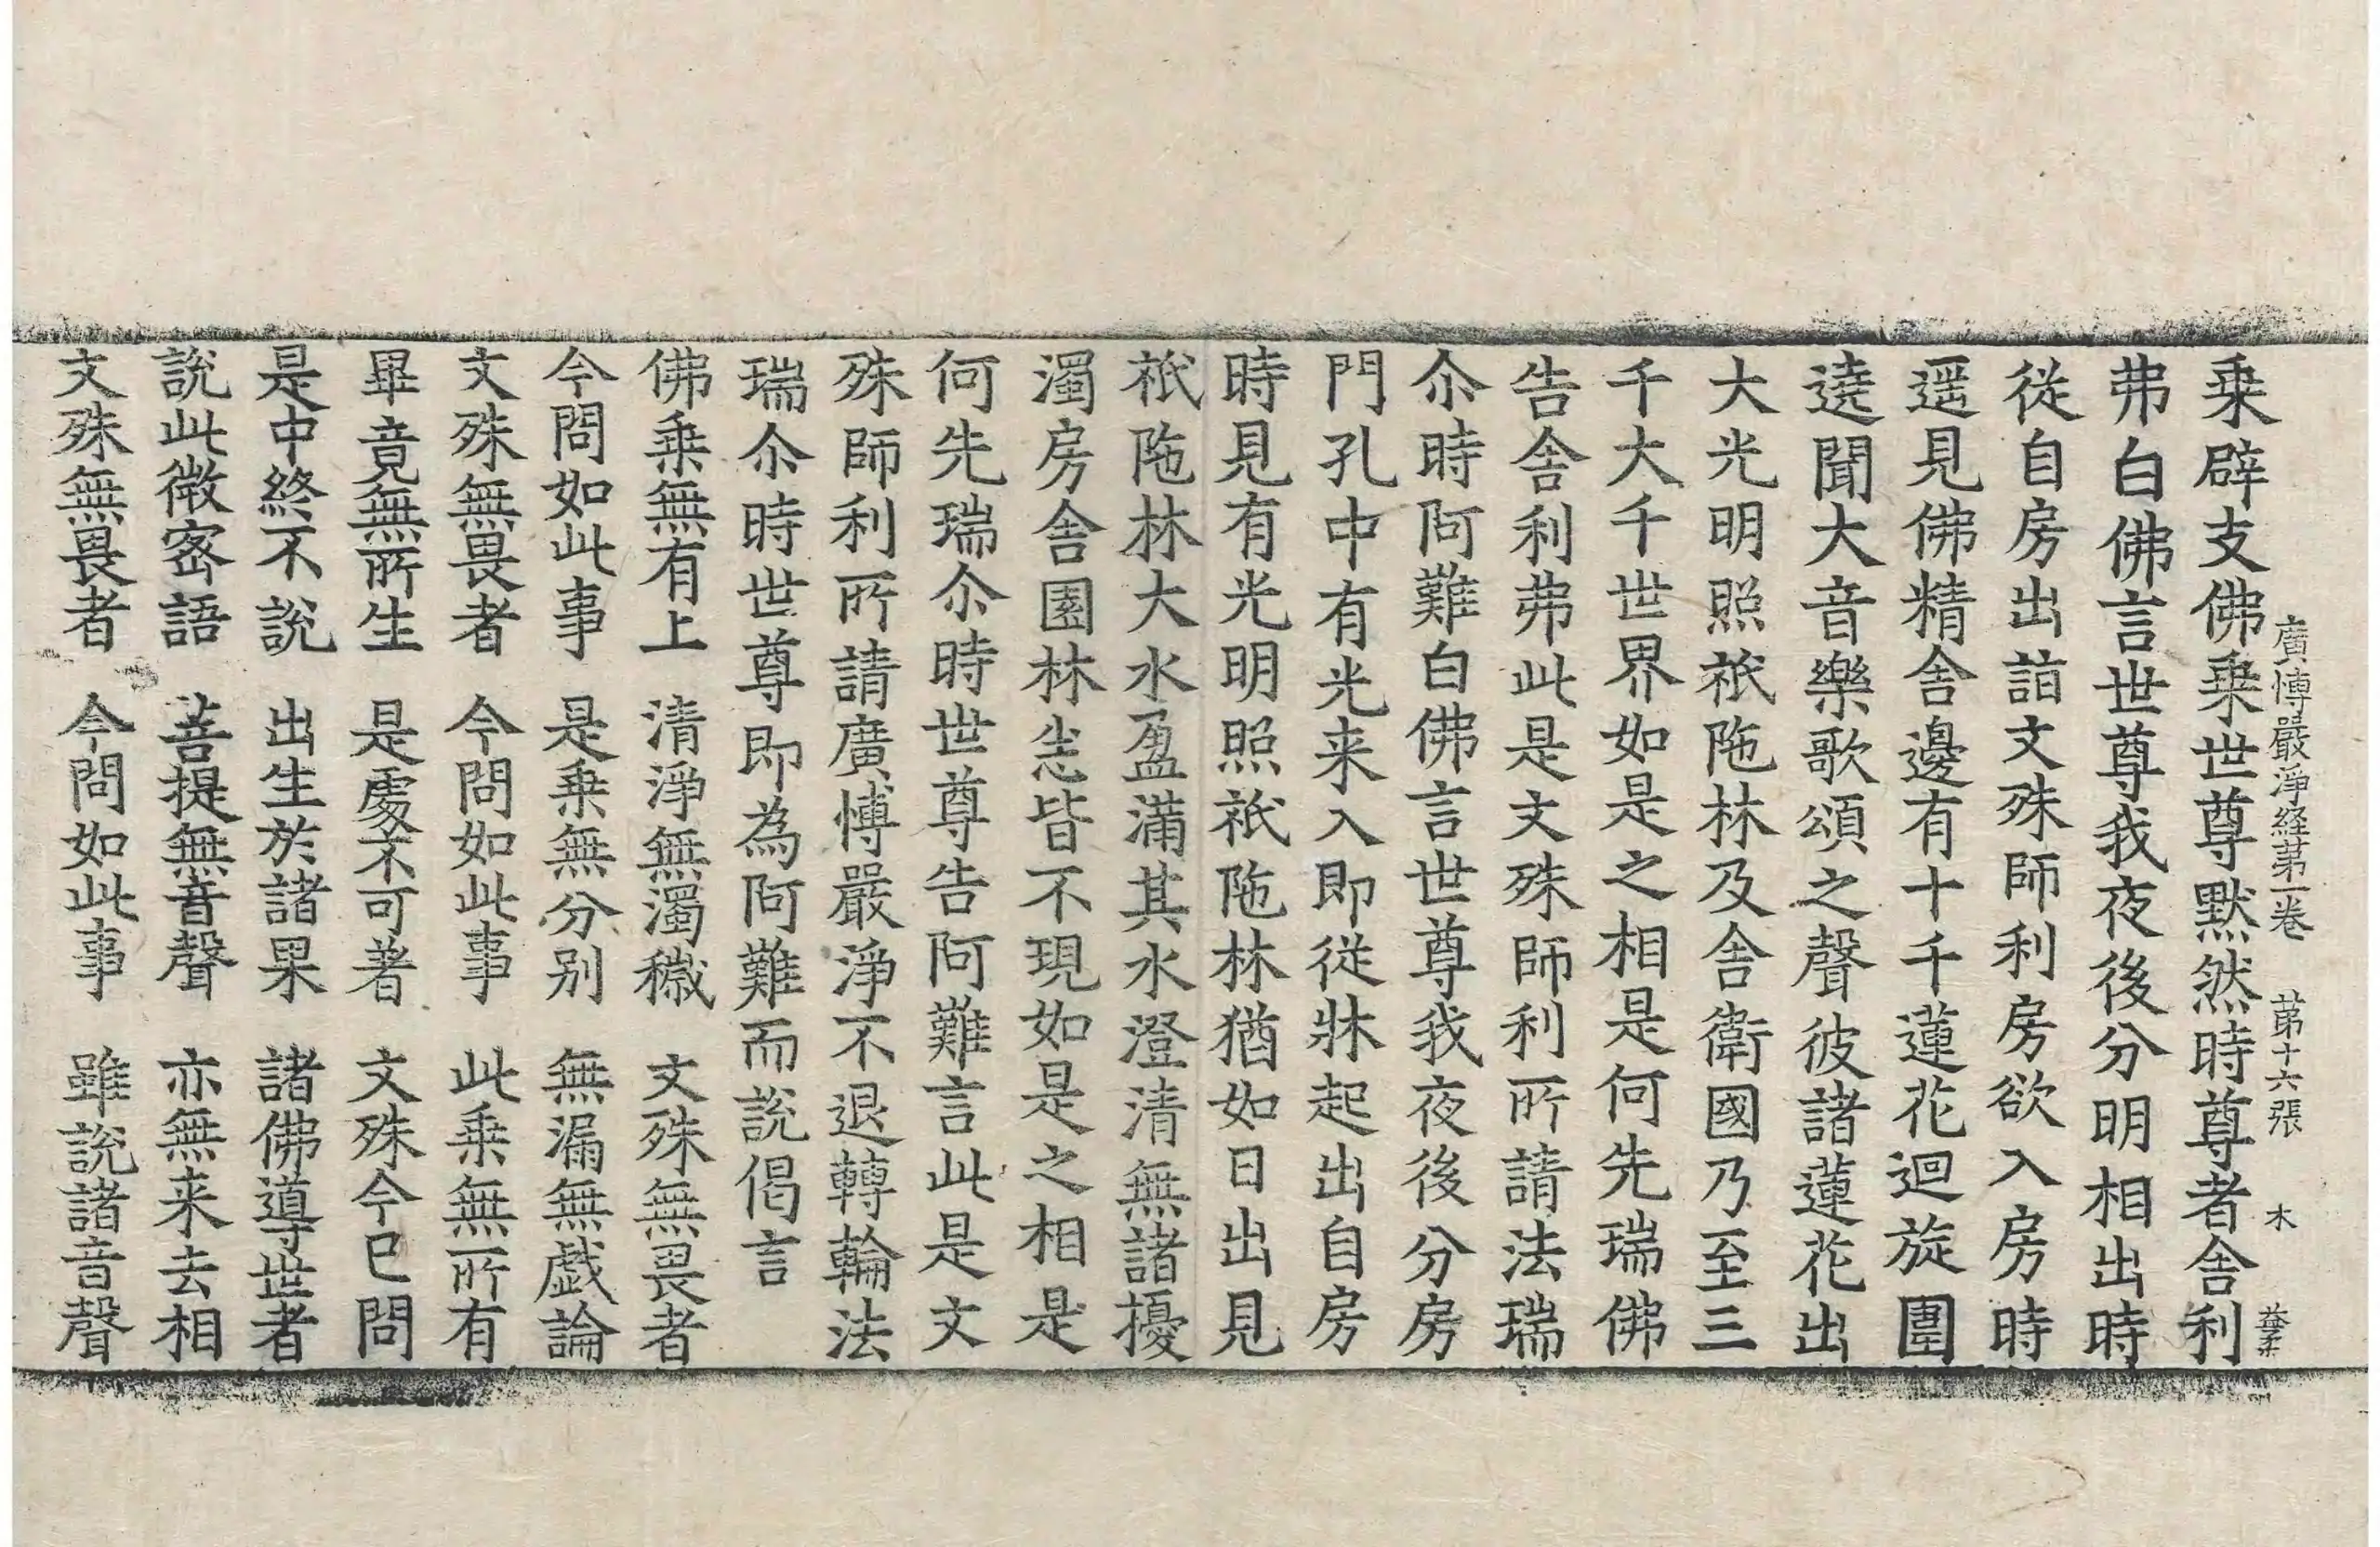 廣博嚴淨経第一卷 第十六張 木 益柔
乗辟支佛乗世尊默然時尊者舎利
弗白佛言世尊我夜後分明相出時
從自房出詣文殊師利房欲入房時
遥見佛精舎邊有十千蓮花迴旋圍
遶聞大音樂歌頌之聲彼諸蓮花出
大光明照祇陁林及舎衛國乃至三
千大千世界如是之相是何先瑞佛
告舎利弗此是文殊師利所請法瑞
尒時阿難白佛言世尊我夜後分房
門孔中有光来入即從牀起出自房
時見有光明照祇陁林猶如日出見
祇陁林大水盈滿其水澄清無諸擾
濁房舎園林悉皆不現如是之相是
何先瑞尒時世尊告阿難言此是文
殊師利所請廣博嚴淨不退轉輪法
瑞尒時世尊即為阿難而說偈言
佛乗無有上 清淨無濁穢 文殊無畏者
今問如此事 是乗無分别 無漏無戯論
文殊無畏者 今問如此事 此乗無所有
畢竟無所生 是處不可著 文殊今已問
是中終不說 出生於諸果 諸佛導世者
說此微密語 菩提無音聲 亦無来去相
文殊無畏者 今問如此事 雖說諸音聲